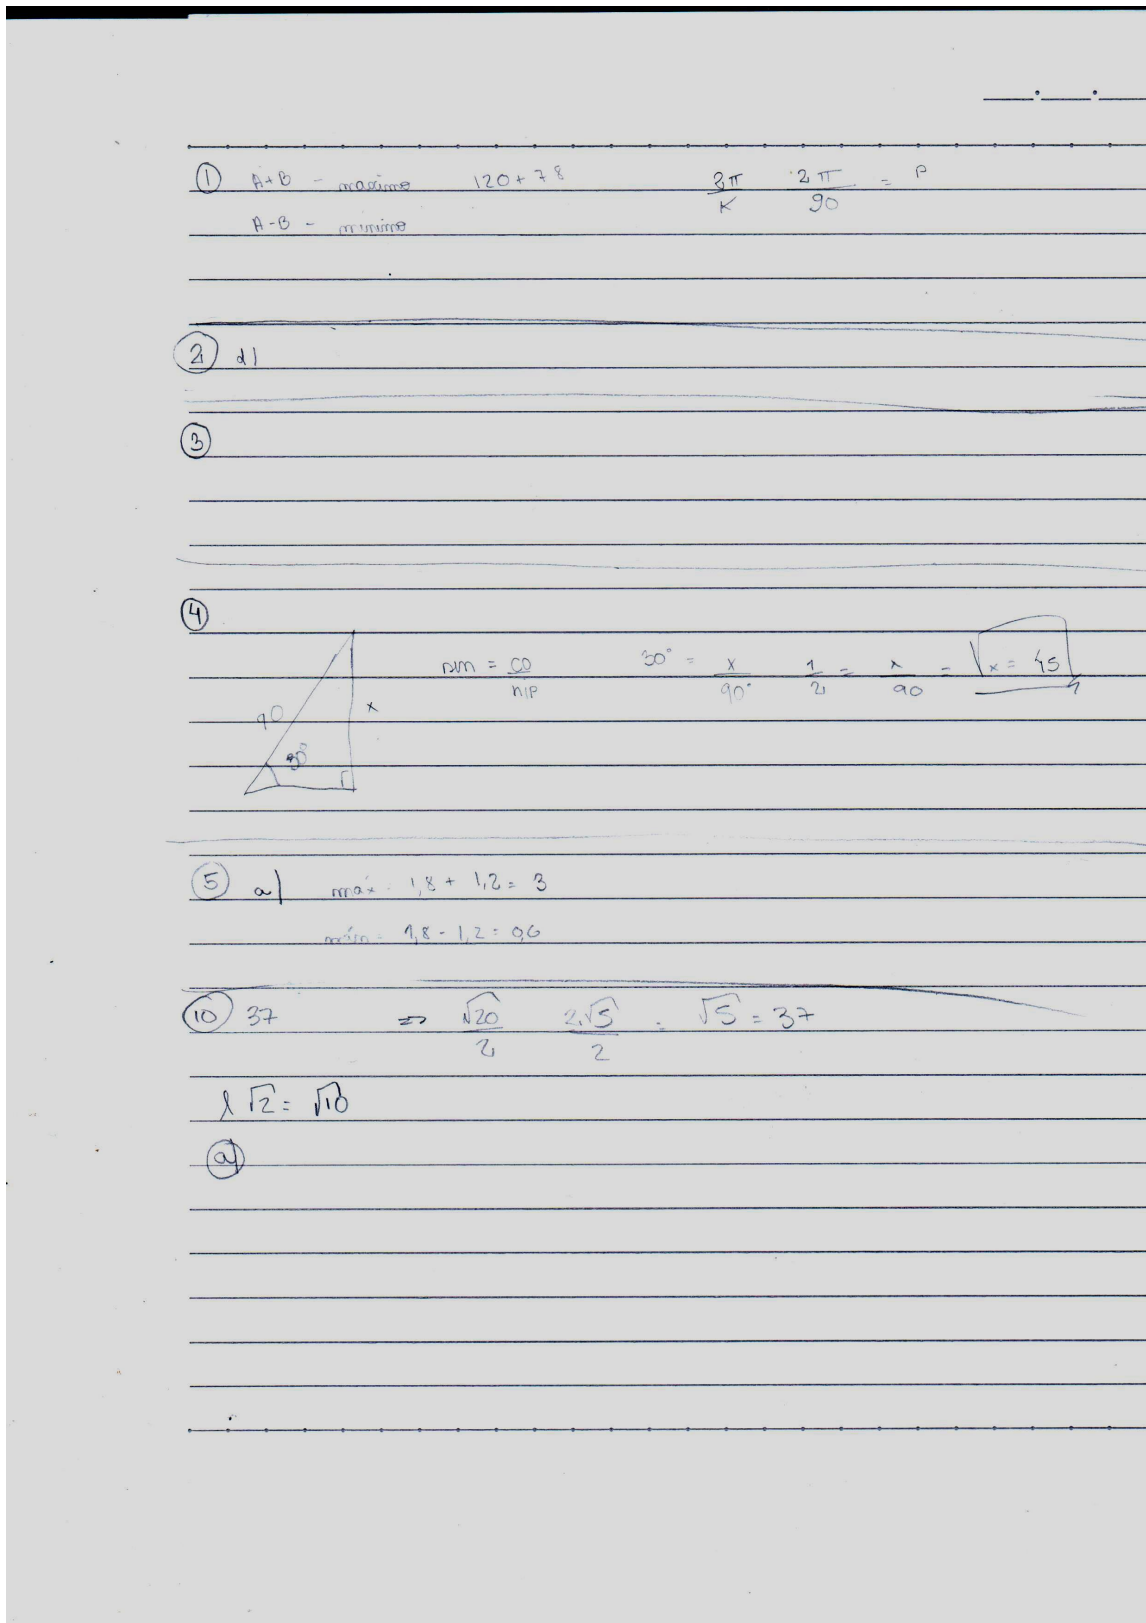 1 A+B - maximo 120+78 2π/K 2π/90 = P
A-B - minimo
2 d)
3
4
sen = CO/hip 30° = x/90° 1/2 = x/90 = x = 45
90 x
30°
5 a) máx = 1,8 + 1,2 = 3
mín = 1,8 - 1,2 = 0,6
10 37 => √20/2 2√5/2 = √5 = 37
l√2 = √10
a)